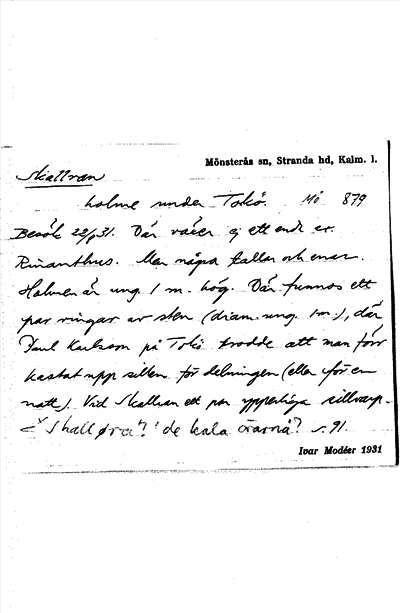 Mönsterås sn, Stranda hd, Kalm. l.
Skallran
holme under Tokö. Mö 879
Besök 22/8 31. Där växer ej ett enda ex.
Rhinanthus. Men några tallar och enar.
Holmen är ung. 1 m. hög. Där funnos ett
par ringar av sten (diam. ung. 1 m.), där
Paul Karlsson på Tokö trodde att man förr
kastat upp sillen för delningen (eller för en
natt). Vid Skallran ett par ypperliga sillvarp.
Skalløra? 'de kala örarna'? s. 91.
Ivar Modéer 1931